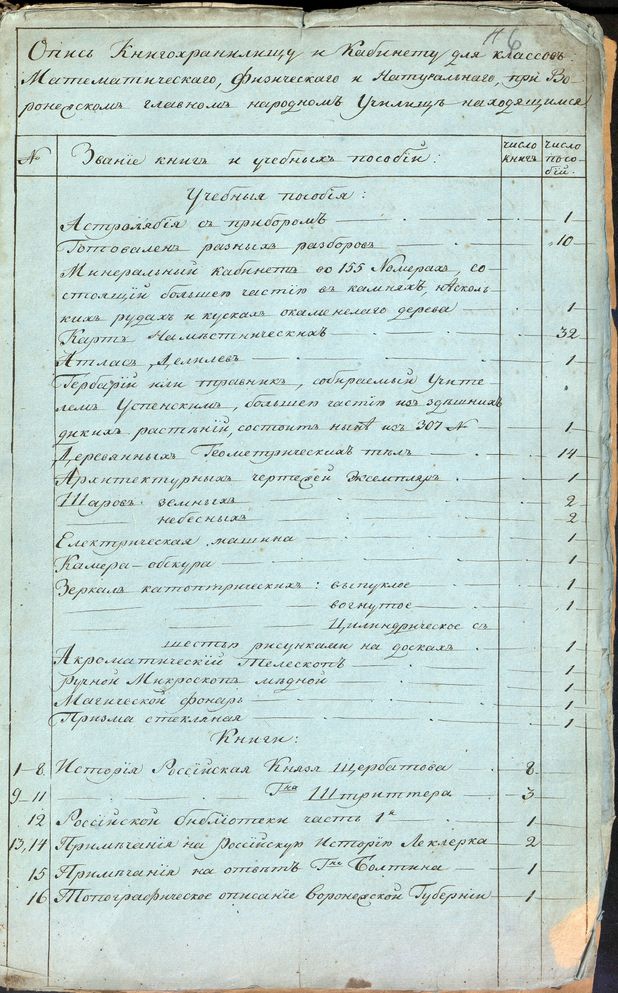 6
Опись Книгохранилищу и Кабинету для классовъ
Математическаго, Физическаго и Натуральнаго, при Во-
ронежскомъ главномъ народномъ Училищѣ находящимся
№ Званіе книгъ и учебныхъ пособій: число книгъ число посо-бій.
Учебныя пособія:
Астролябія съ приборомъ 1
Готовалень разныхъ разборовъ 10
Минеральный кабинетъ во 155 Номерахъ, со-
стоящій большею частію въ камняхъ, нѣсколь-
кихъ рудахъ и кускахъ окаменелаго дерева 1
Картъ Намѣстническихъ 32
Атласъ Делилевъ 1
Гербарій или травникъ, собираемый Учите-
лемъ Успенскимъ, большею частію изъ здѣшнихъ
дикихъ растѣній, состоитъ нынѣ изъ 307 № 1
Деревянныхъ Геометрическихъ тѣлъ 14
Архитектурныхъ чертежей Экземпляръ 1
Шаровъ земныхъ 2
небесныхъ 2
Електрическая машина 1
Камера-обскура 1
Зеркалъ катоптрическихъ: выпуклое 1
вогнутое 1
Цилиндрическое съ
шестью рисунками на доскахъ 1
Акроматическій Телескопъ 1
Ручной Микроскопъ мѣдной 1
Магической фонарь 1
Призма стекляная 1
Книги:
1-8 Исторія Россійская Князя Щербатова 8
9-11 Гна Штриттера 3
12 Россійской библіотеки часть 1я 1
13,14 Примѣчанія на Россійскую Исторію Леклерка 2
15 Примѣчанія на отвѣтъ Гна Болтина 1
16 Топографическое описаніе Воронежской Губерніи 1